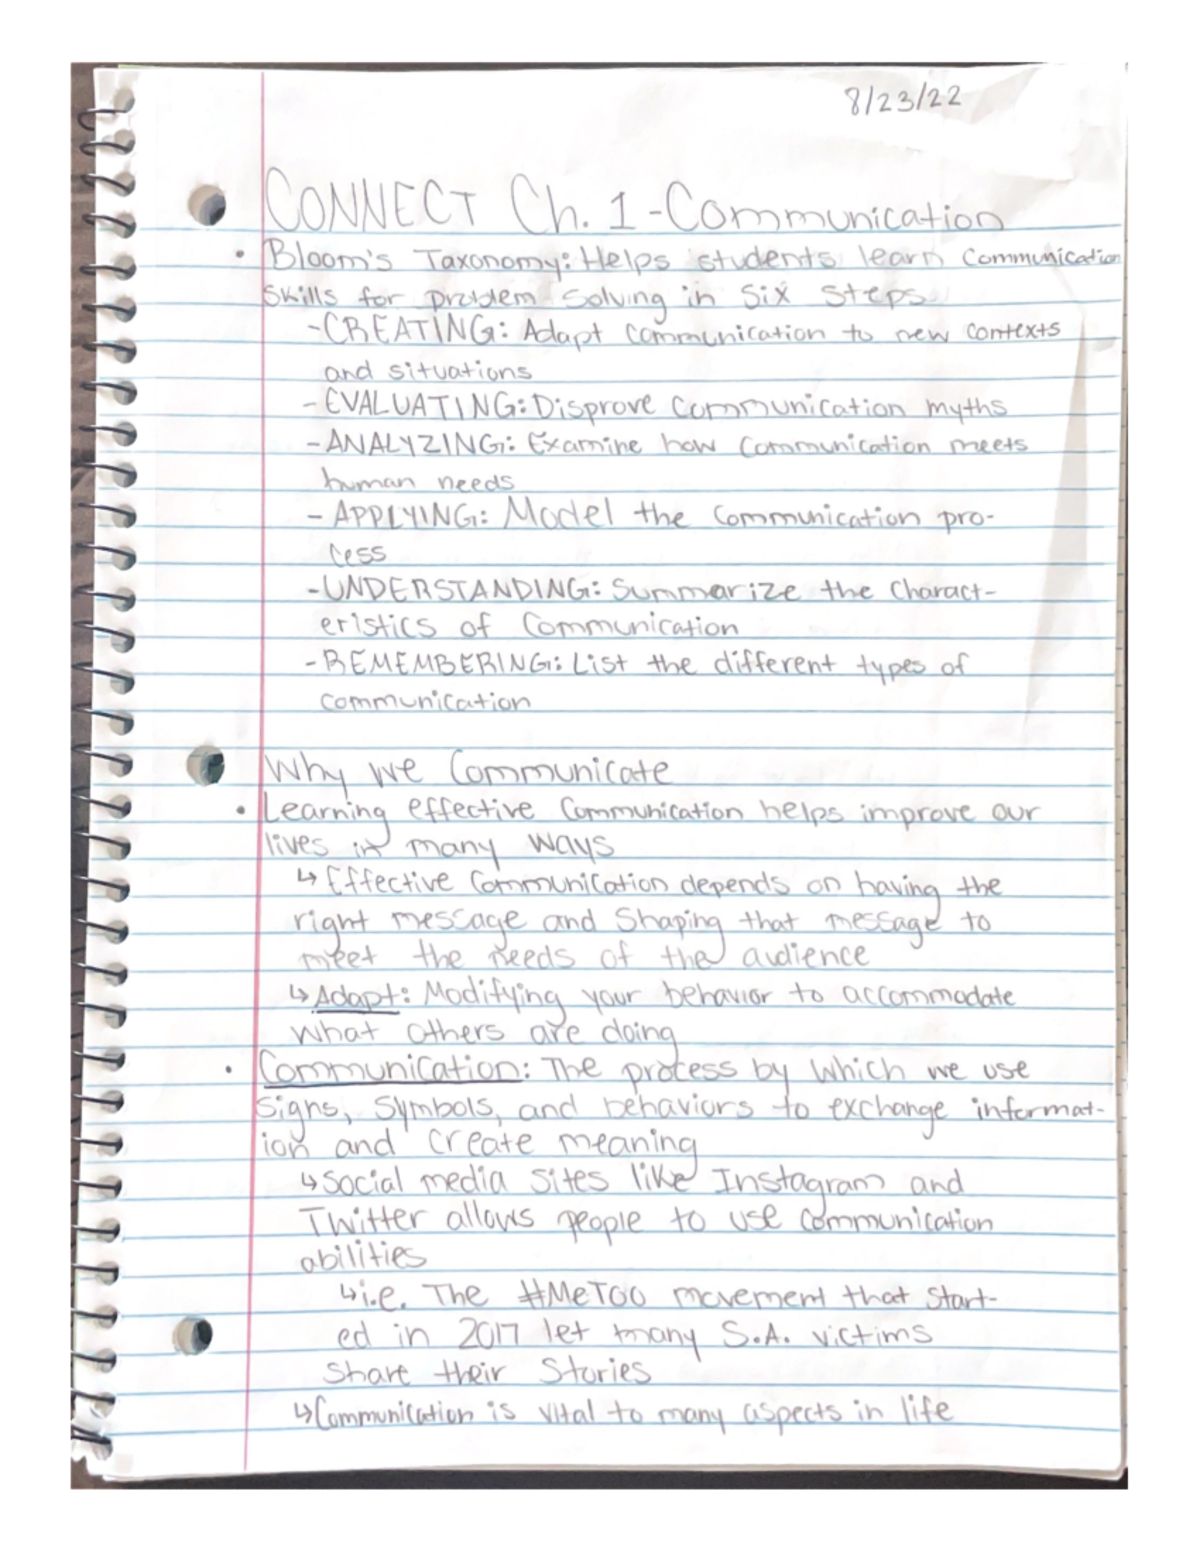 8/23/22
CONNECT Ch. 1-Communication
• Bloom's Taxonomy: Helps students learn communication
skills for problem solving in six steps
-CREATING: Adapt communication to new contexts
and situations
- EVALUATING: Disprove communication myths
-ANALYZING: Examine how communication meets
human needs
- APPLYING: Model the communication pro-
cess
-UNDERSTANDING: Summarize the charact-
eristics of communication
-REMEMBERING: List the different types of
communication
Why we Communicate
• Learning effective communication helps improve our
lives in many ways
↳ Effective communication depends on having the
right message and shaping that message to
meet the needs of the audience
↳ Adapt: Modifying your behavior to accommodate
what others are doing
• Communication: The process by which we use
signs, symbols, and behaviors to exchange informat-
ion and create meaning
↳ Social media sites like Instagram and
Twitter allows people to use communication
abilities
↳ i.e. The #MeToo movement that start-
ed in 2017 let many S.A. victims
share their stories
↳ Communication is vital to many aspects in life